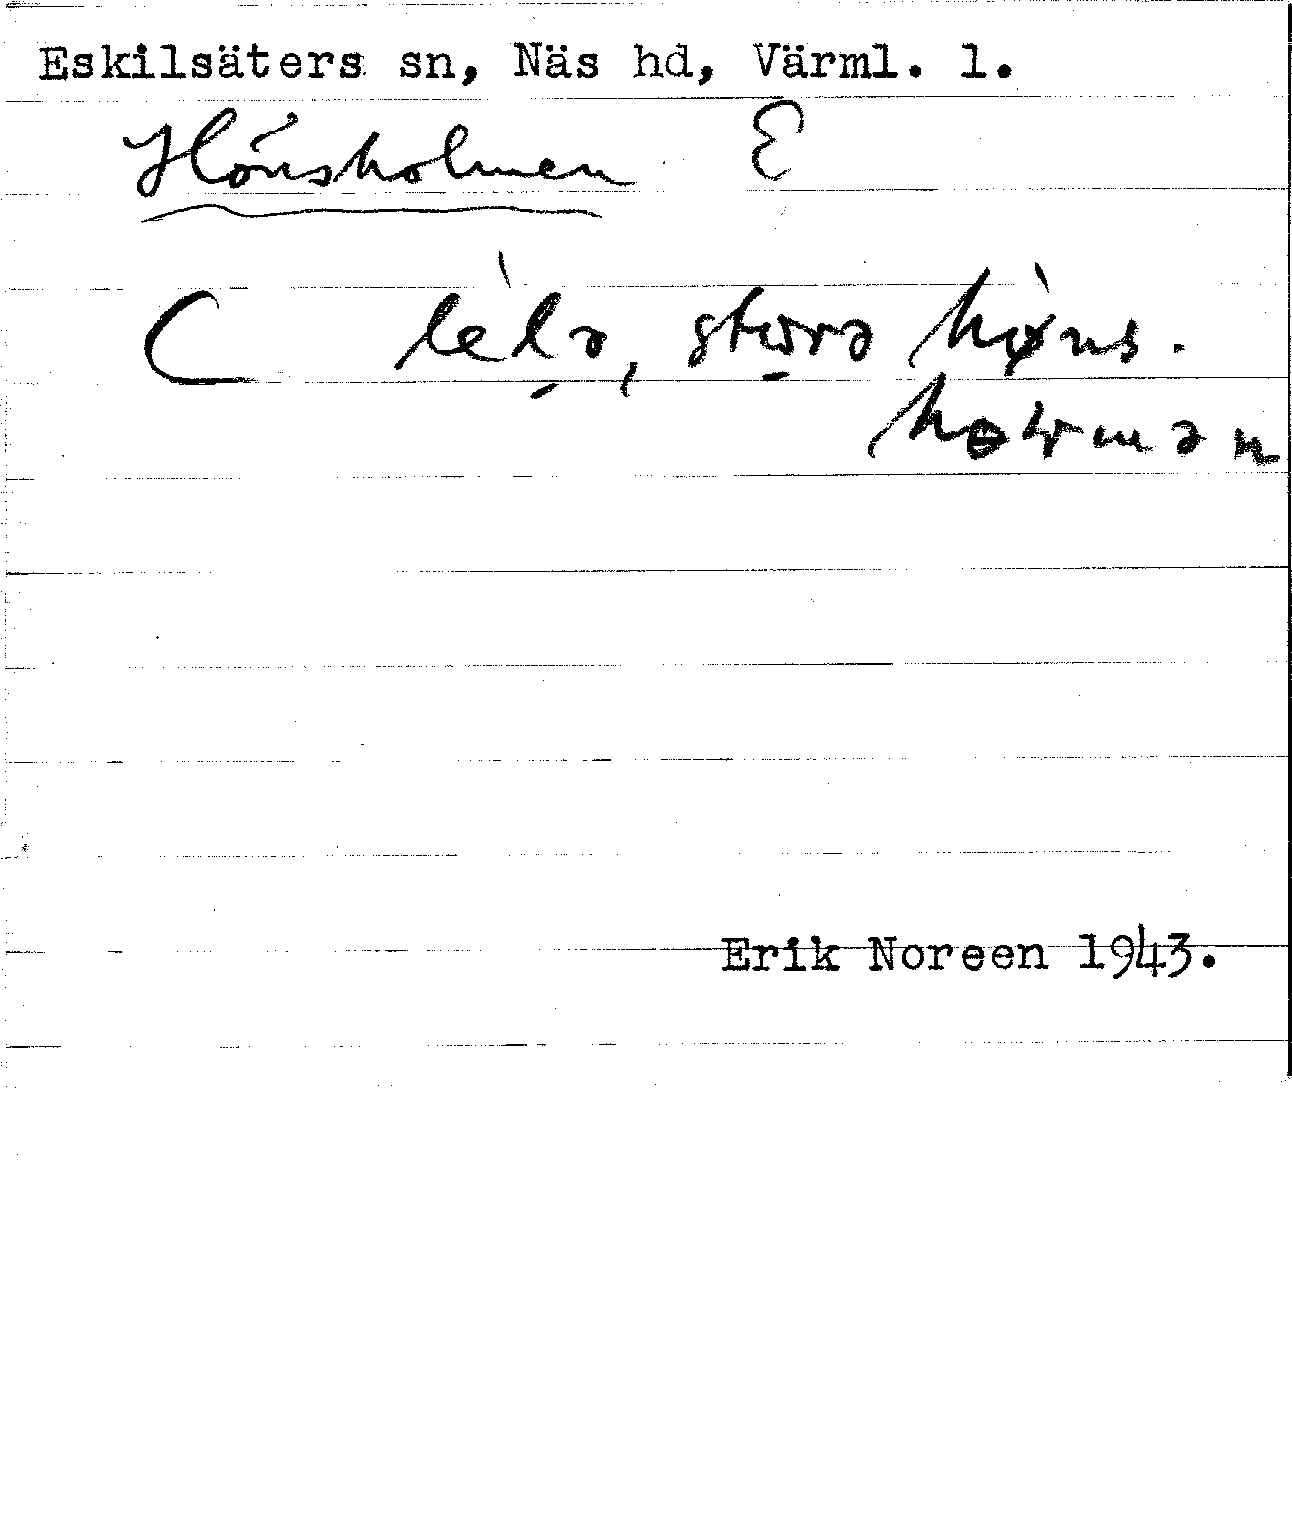 Eskilsäters sn, Näs hd, Värml. l.
Hönsholmen E
C lèlə, storə hø̀ns.
holmən
Erik Noreen 1943.